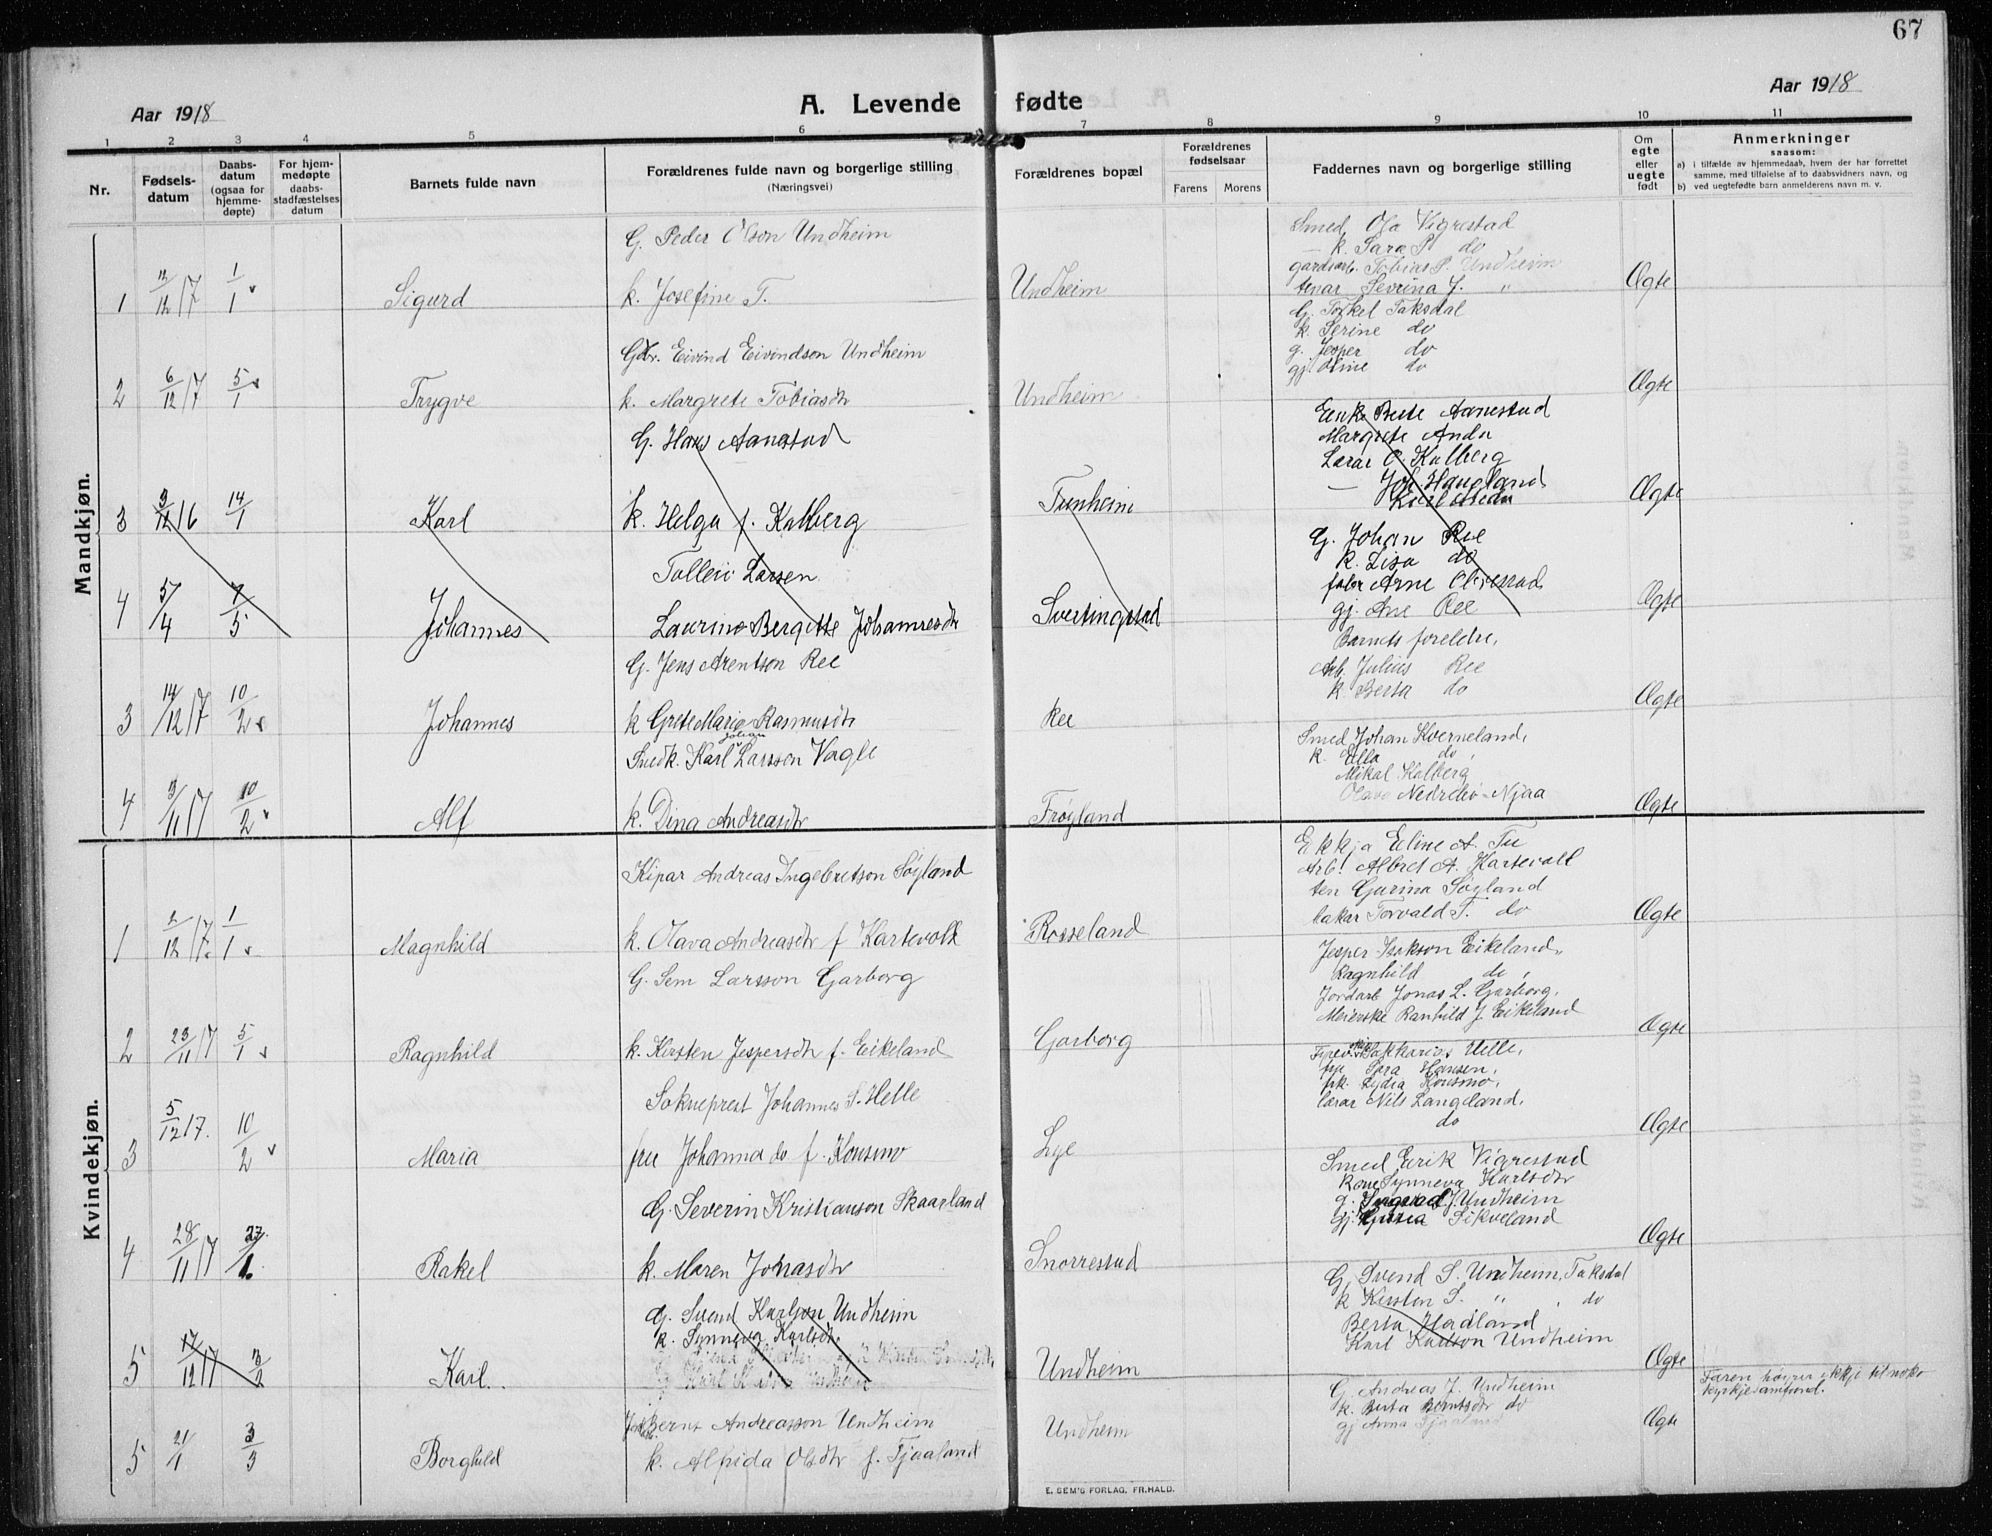 67
Aar 1918
A. Levende fødte
Aar 1918
1 2 3 4 5 6 7 8 9 10 11
Nr.
Fødsels-
datum
Daabs-
datum
(ogsaa for
hjemme-
døpte)
For hjem-
medøpte
daabs-
stadfæstelses
datum
Barnets fulde navn
Forældrenes fulde navn og borgerlige stilling
(Næringsvei)
Forældrenes bopæl
Forældrenes
fødselsaar
Farens Morens
Faddernes navn og borgerlige stilling
Om
egte
eller
uegte
født
Anmerkninger
saasom:
a) i tilfælde av hjemmedaab, hvem der har forrettet
samme, med tilføielse af to daabsvidners navn, og
b) ved uegtefødte barn anmelderens navn m. v.
Mandkjøn.
G. Peder Olson Undheim
1 12/12 17 1/1 Sigurd k. Josefine T. Undheim Ægte
Smed Ola Vigrestad
— k. Sara P. do
gardsarb. Tobias P. Undheim
tenar Sevrina J. "
Gbr. Eivind Eivindson Undheim
2 6/12 17 5/1 Trygve k. Margrete Tobiasdtr Undheim Ægte
G. Torkel Taksdal
k. Serine do
g. Jesper do
gj. Oline do
G. Hans Aanestad
3 3/12 16 14/1 Karl k. Helga f. Kalberg Tunheim Ægte
Enke Berte Aanestad
Margrete Anda
Lærar O. Kalberg
— Joh. Haugland
Tolleiv Larsen
4 5/4 7/5 Johannes Laurine Bergitte Johannesdtr Svertingstad Ægte
G. Johan Ree
k. Lisa do
Arne
gj. Ane Ree
G. Jens Arentson Ree
3 14/12 17 10/2 Johannes k Grete Marie Rasmusdtr Ree Ægte
Barnets foreldre,
Arb. Julius Ree
k. Berta do
Johan
Snedk. Karl Larsson Vagle
4 9/11 17 10/2 Alf k. Dina Andreasdtr Frøyland Ægte
Smed Johan Kverneland,
k. Ella do,
Mikal Kalberg
Olava Nedrebø - Njaa
Kvindekjøn.
Kipar Andreas Ingebretson Søyland
1 2/12 17. 1/1 Magnhild k. Olava Andreasdtr f Kartevoll Rosseland Ægte
Ekkja Eline A. Tu
Arb. Albret A. Kartevoll
ten Gurina Søyland
bakar Torvald T. do
G. Sem Larsson Garborg
2 23/11 17 5/1 Ragnhild k. Kirsten Jespersdtr f. Eikeland Garborg Ægte
Jesper Isakson Eikeland,
Ragnhild do,
Jordarb Jonas L. Garborg,
Meierske Ranhild J Eikeland
Sokneprest Johannes S. Helle
3 5/12 17. 10/2 Maria fru Johanna do f. Konsmo Lye Ægte
Sakkarias Helle,
fru Sara Hansen,
frk. Lydia Konsmo,
lærar Nils Langeland,
do
G. Severin Kristianson Skaarland
4 28/11 17 27/1. Rakel k. Maren Jonasdtr Snorrestad Ægte
Smed Eirik Vigrestad
Kone Synneva Karlsdtr
g. J. Undheim
gj. Sikveland
G. Svend Karlson Undheim
k. Synneva Karlsdtr
5 17/12 17 3/2 Karl. Undheim Ægte
G. Svend S. Undheim, Taksdal
k Kirsten S. " , do
Berta Hadland
Karl Karlson Undheim
Bernt Andreasson Undheim
5 21/1 3/3 Borghild k. Alfrida Olsdtr f. Tjaaland Undheim Ægte
G. Andreas J. Undheim
k. Berta Berntsdtr do
gj Anna Tjaaland
Faren høirer ikkje til noko
kyrkjesamfund.
E. SEM'S FORLAG, FR.HALD.